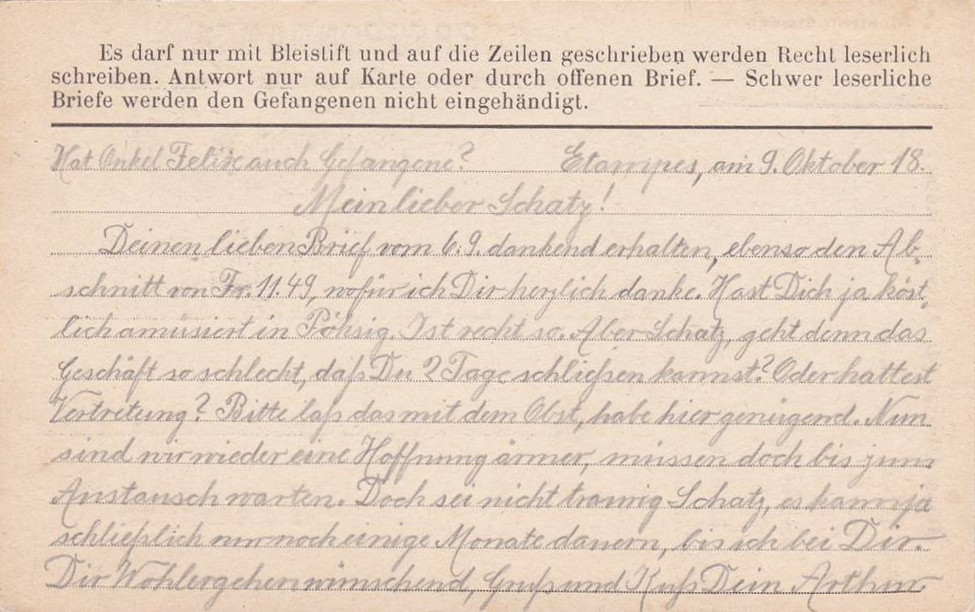 Es darf nur mit Bleistift und auf die Zeilen geschrieben werden Recht leserlich
schreiben. Antwort nur auf Karte oder durch offenen Brief. — Schwer leserliche
Briefe werden den Gefangenen nicht eingehändigt.
Hat Onkel Felix auch Gefangene? Etampes, am 9. Oktober 18.
Mein lieber Schatz!
Deinen lieben Brief vom 6.9. dankend erhalten, ebenso den Ab-
schnitt von Fr. 11.49, wofür ich Dir herzlich danke. Hast Dich ja köst-
lich amüsiert in Pöhsig. Ist recht so. Aber Schatz, geht denn das
Geschäft so schlecht, daß Du 2 Tage schließen kannst? Oder hattest
Vertretung? Bitte laß das mit dem Obst, habe hier genügend. Nun
sind wir wieder eine Hoffnung ärmer, müssen doch bis zum
Austausch warten. Doch sei nicht traurig Schatz, es kann ja
schließlich nur noch einige Monate dauern, bis ich bei Dir.
Dir Wohlergehen wünschend, Gruß und Kuß Dein Arthur